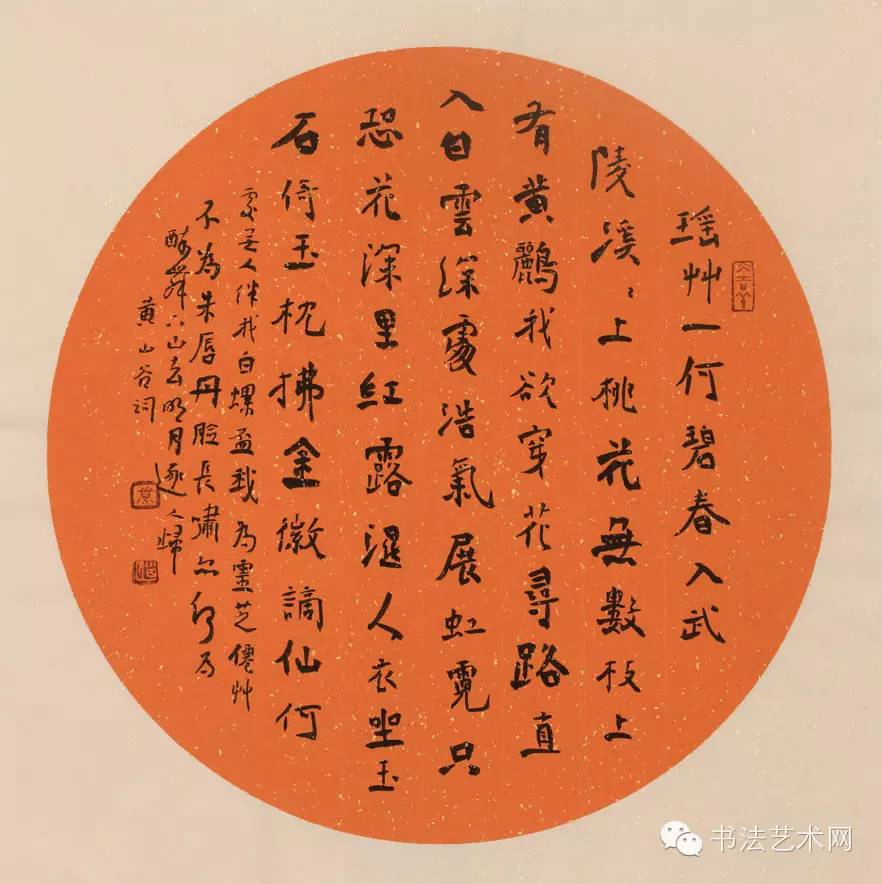 瑶艸一何碧春入武
陵溪〻上桃花無數枝上
有黄鸝我欲穿花尋路直
入白雲深處浩氣展虹霓只
恐花深里紅露濕人衣坐玉
石倚玉枕拂金徽謫仙何
處無人伴我白螺盃我為靈芝僊艸
不為朱唇丹臉長嘯亦何為
醉舞下山去明月逐人歸
黄山谷詞
书法艺术网